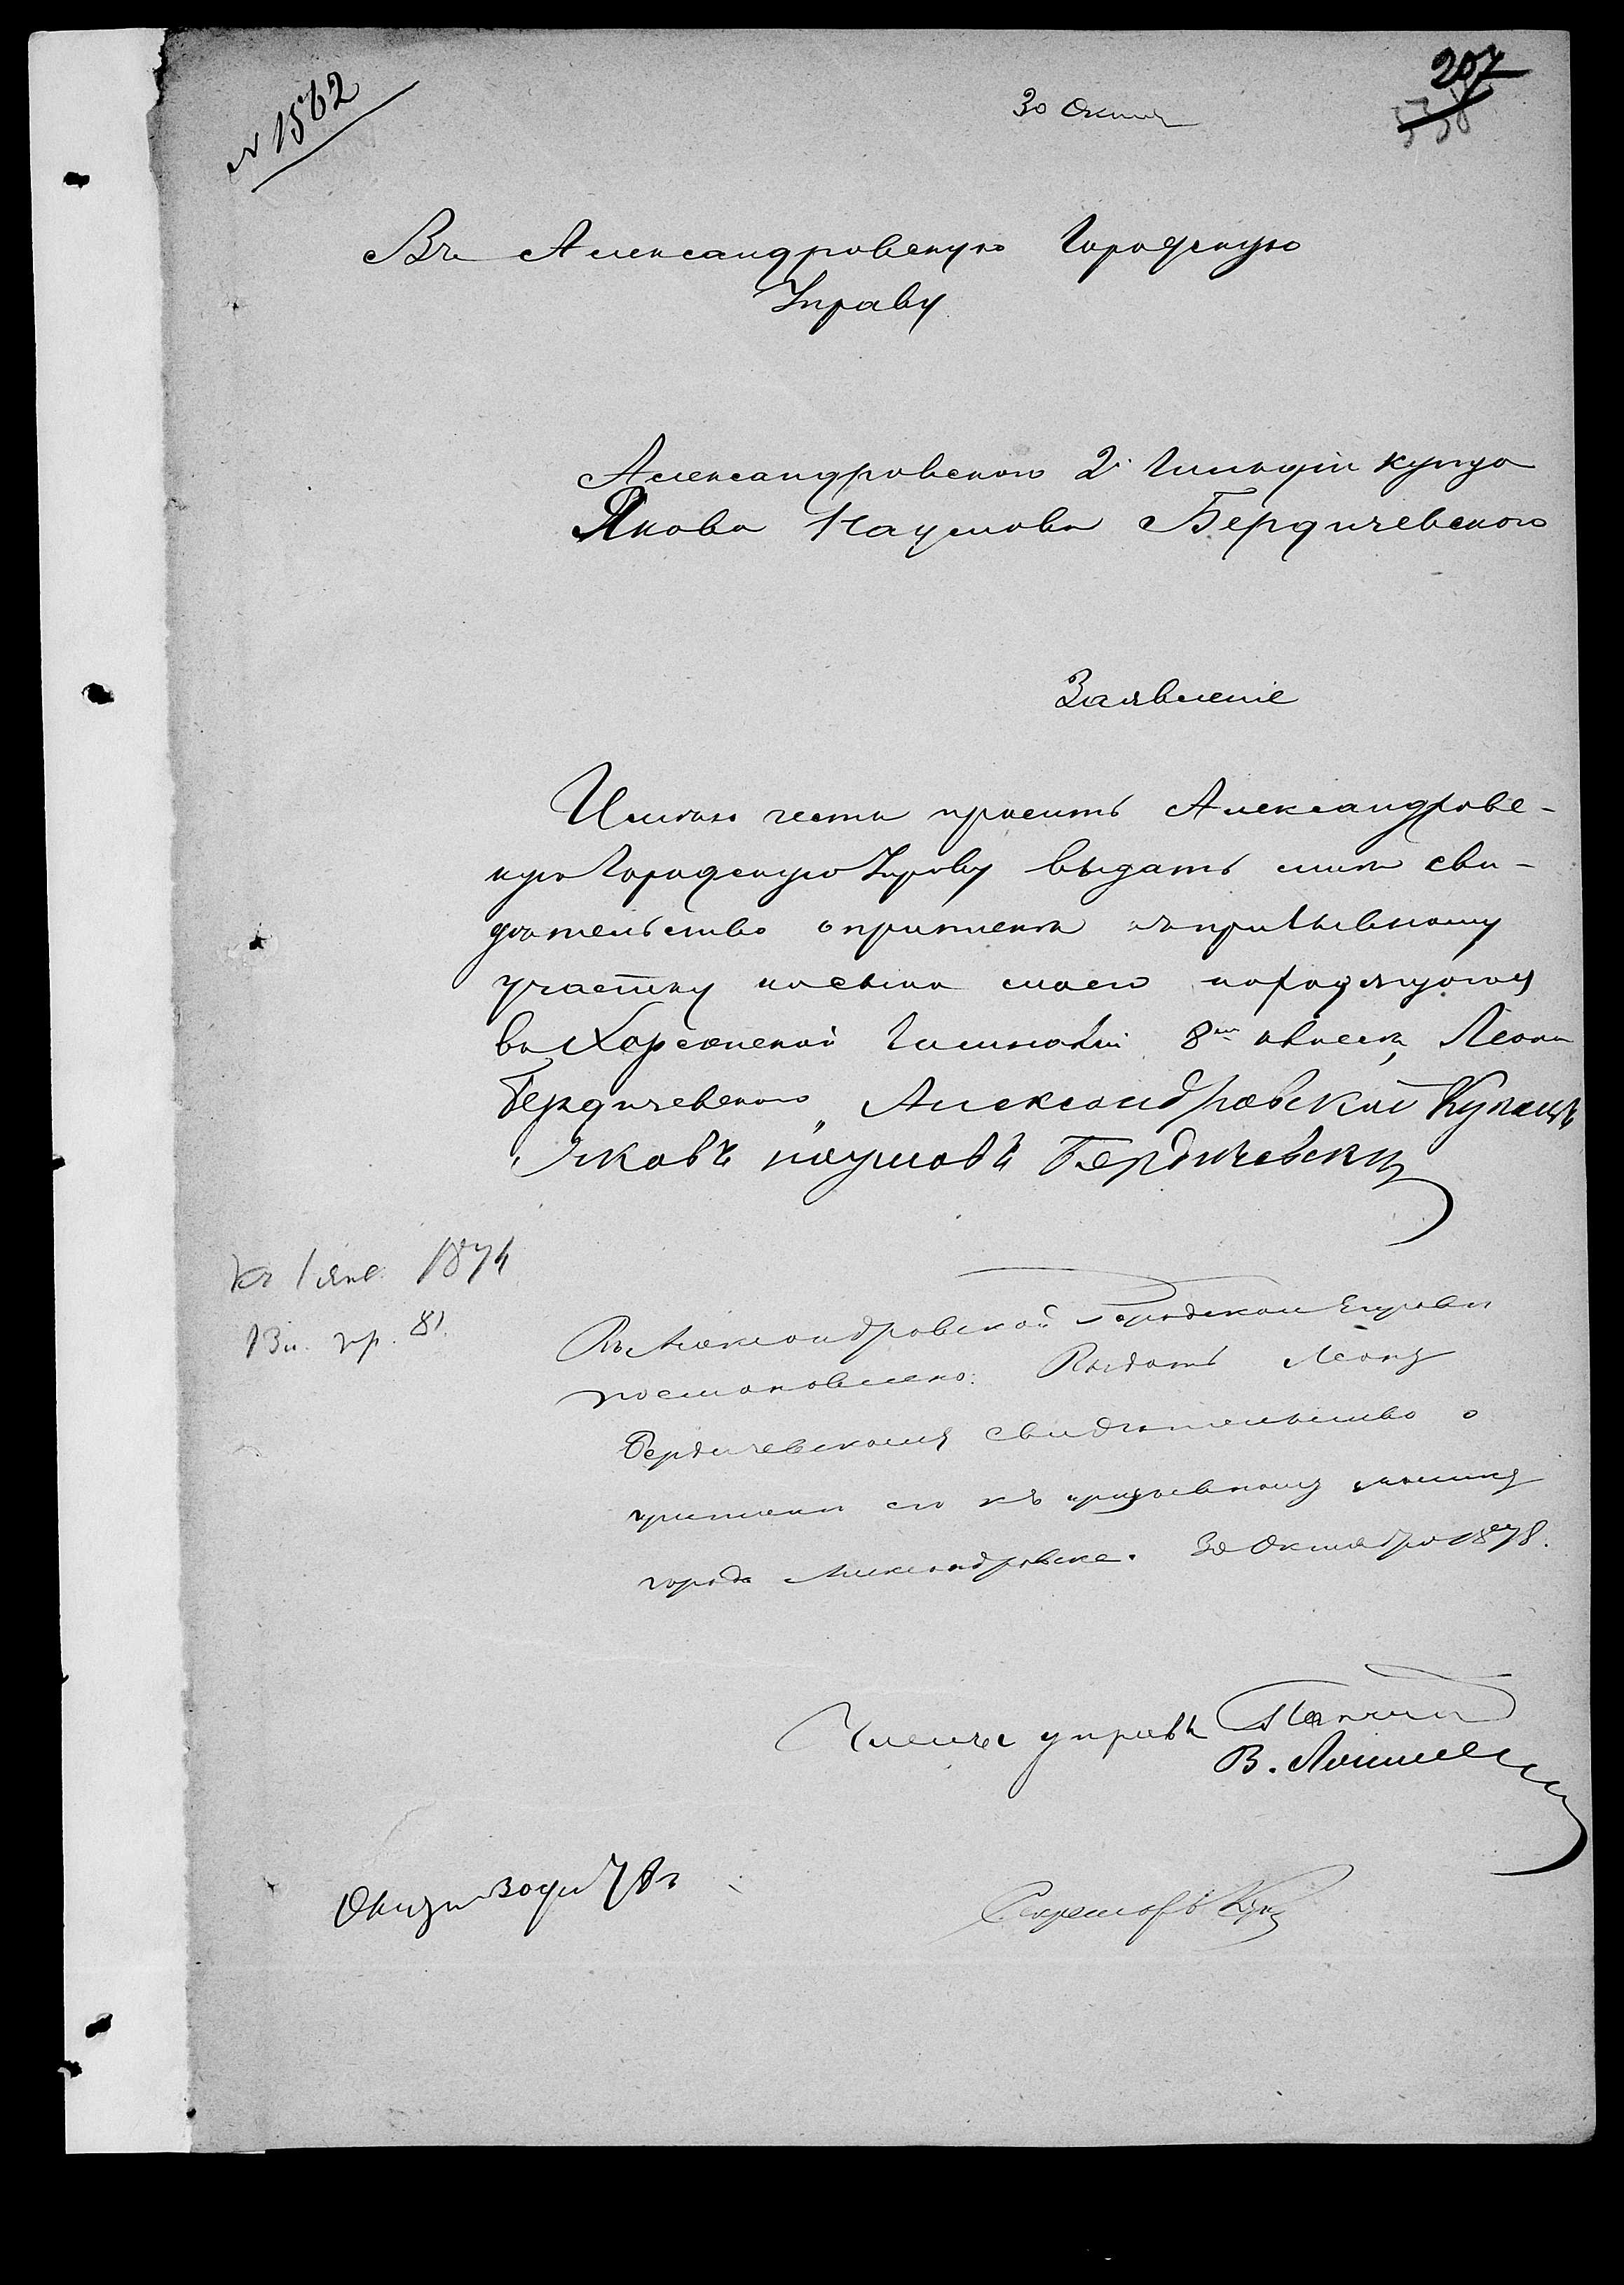 № 1562
207
30 Октяб
Въ Александровскую Городскую
Управу
Александровскаго 2й Гильдіи купца
Якова Наумова Бердичевскаго
Заявленіе
Имѣю честь просить Александровс-
кую Городскую Управу выдать мнѣ сви-
дѣтельство о припискѣ къ призывному
участку на сына моего находящагося
въ Херсонской Гимназіи 8м классѣ, Леона
Бердичевскаго Александровскій Купецъ
Яковъ Наумовъ Бердичевскій
Къ 1 янв. 1874
13 л. 81
Въ Александровской Городской Управѣ
постановлено: Выдать Леону
Бердичевскому свидѣтельство о
припискѣ его къ призывному участку
города Александровска. 30 Октября 1878.
Члены управы
В.
Секретарь